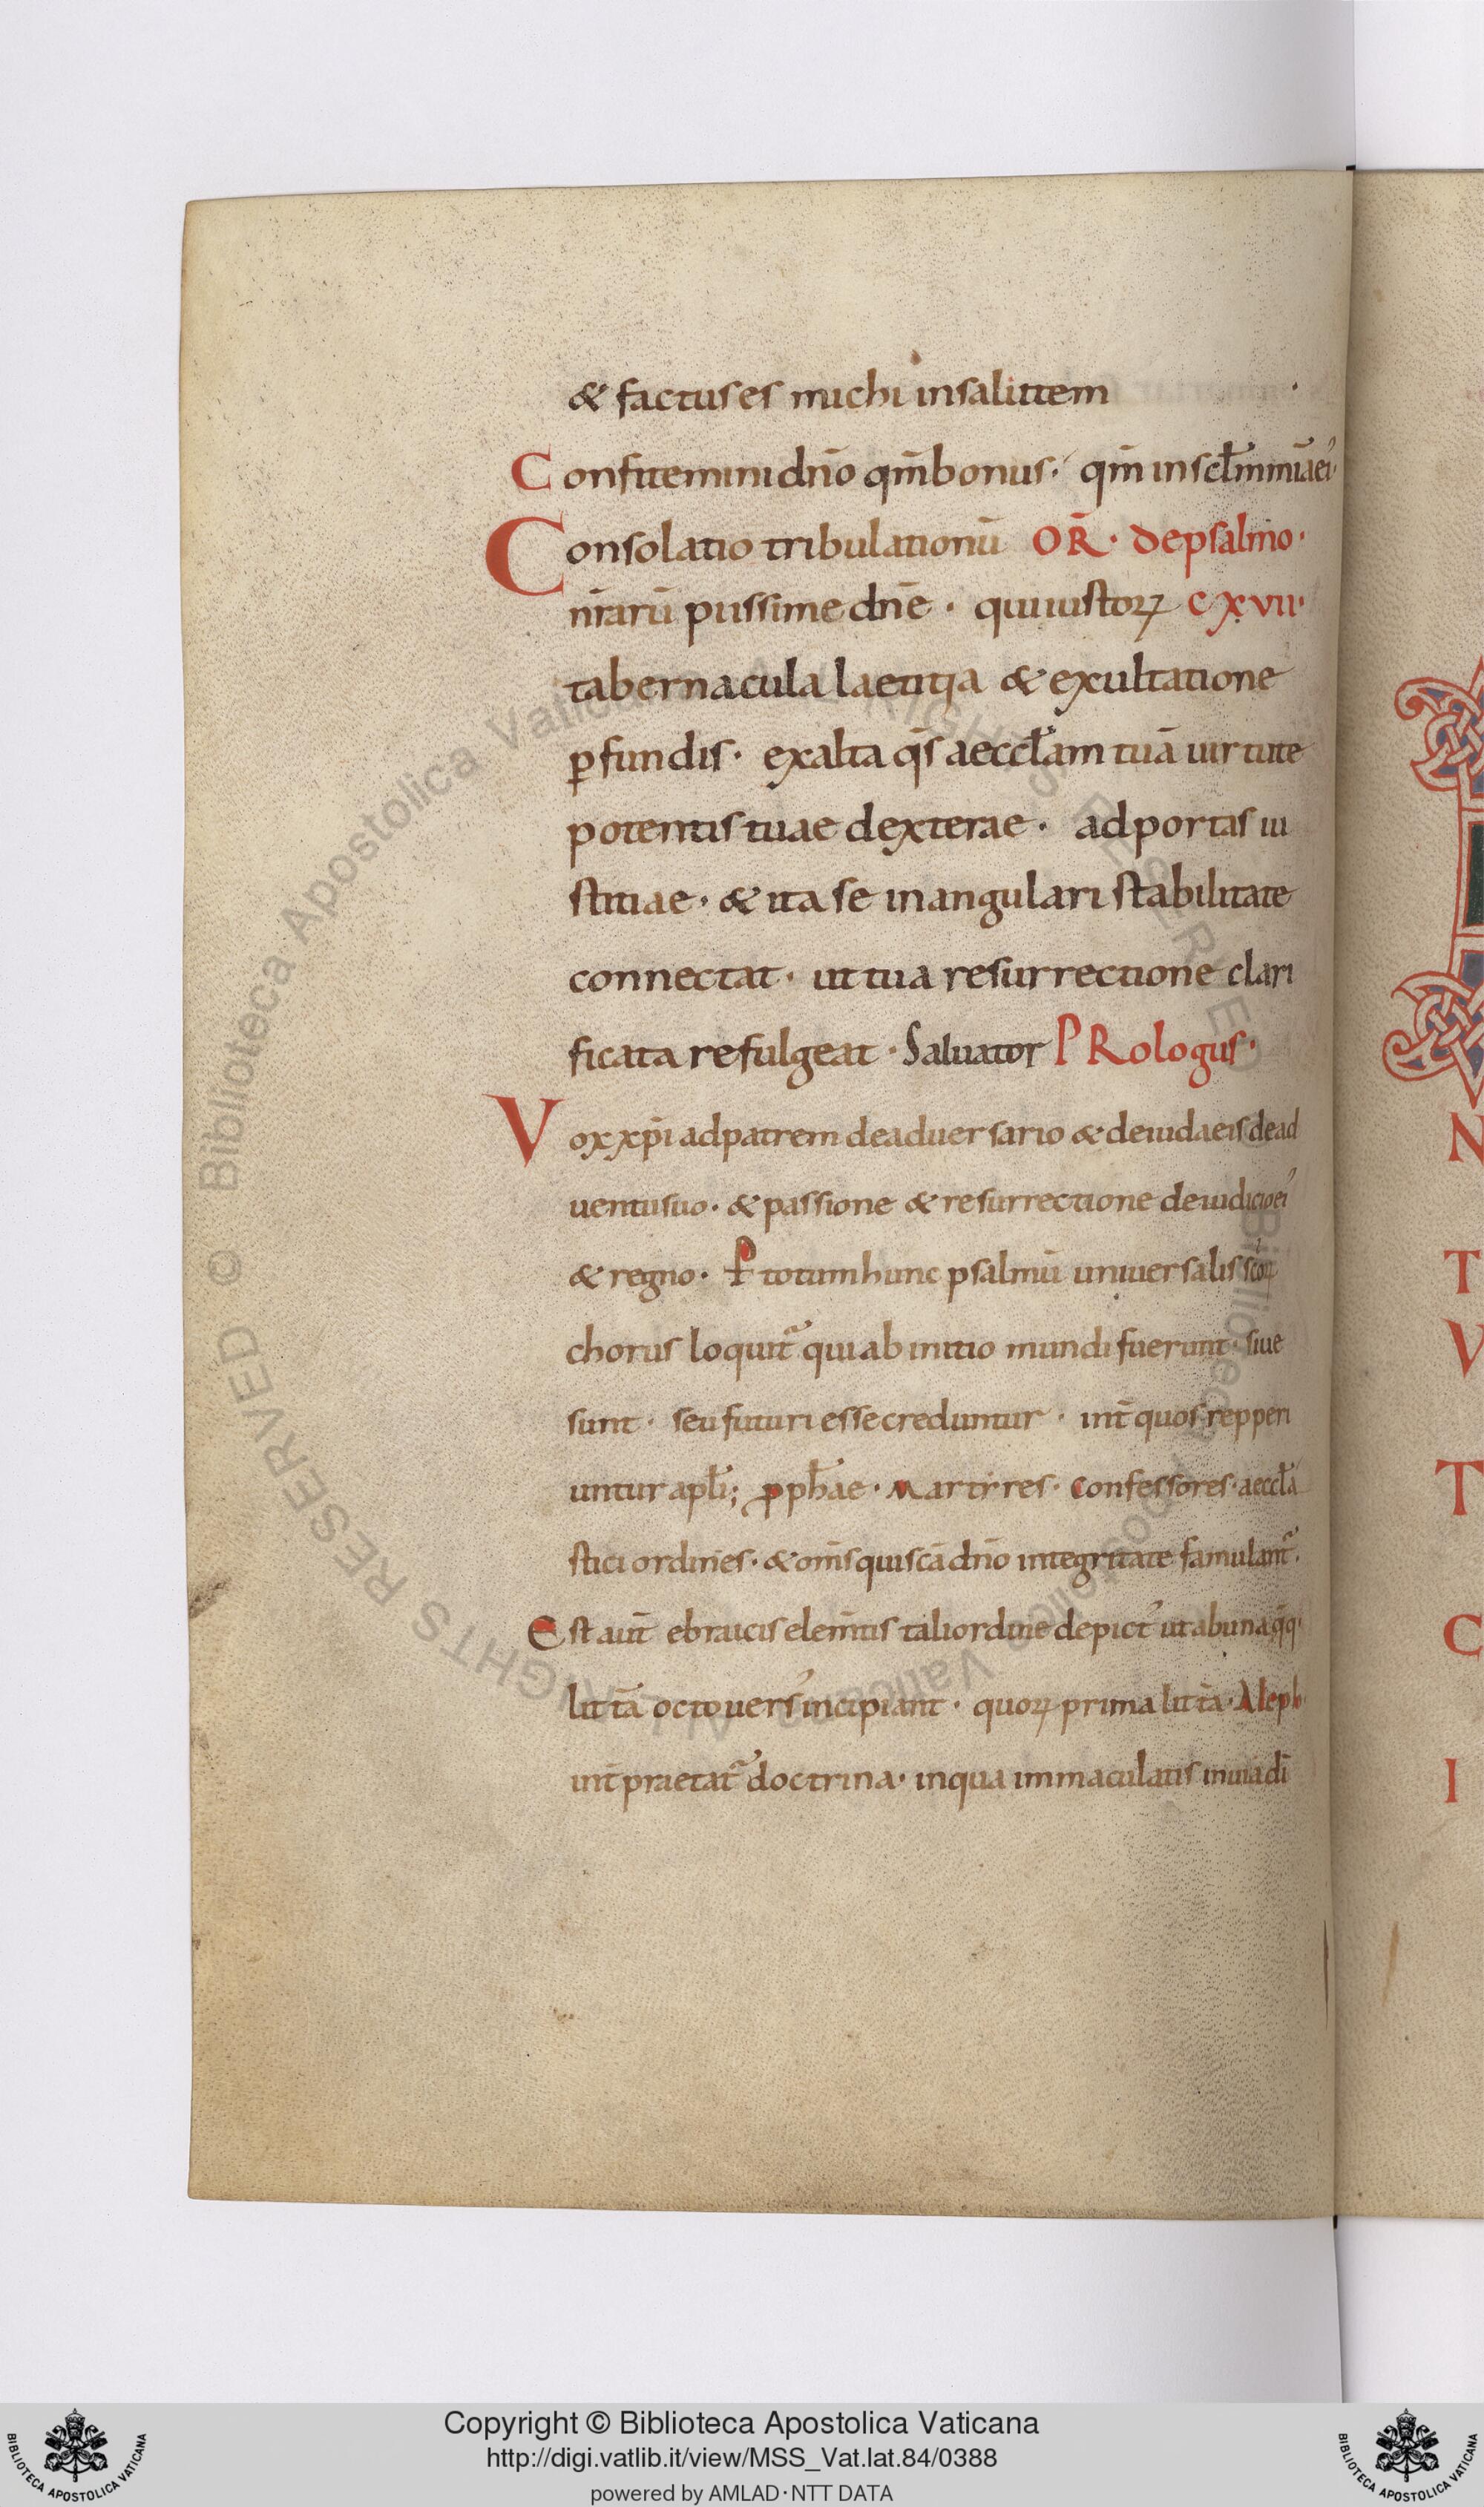 & factus es michi in salutem
Confitemini dnō qm̄ bonus· qm̄ in sclm̄ mīa ei'·
Consolatio tribulationū OR̄· de psalmo·
nr̄arū piissime dnē· qui iustoꝝ cxvii·
tabernacula laetitia & exultatione
ꝑfundis· exalta qs̄ aeccl̄am tuā uirtute
potentis tuae dexterae· ad portas iu
stitiae· & ita se in angulari stabilitate
connectat· ut tua resurrectione clari
ficata refulgeat· Saluator PRologus·
Vox xp̄i ad patrem de aduersario & de iudaeis de ad
uentu suo· & passione & resurrectione de iudicio ei'
& regno· P̄ totum hunc psalmū uniuersalis sc̄oꝝ
chorus loquit̄ qui ab initio mundi fuerunt· siue
sunt· seu futuri esse creduntur· int̄ quos repperi
untur apl̄i; ꝓph̄ae· Martyres· Confessores· aeccl̄a
stici ordines· & om̄s qui sc̄a dnō integritate famulant̄·
Est aut̄ ebraicis elem̄tis tali ordine depict' ut ab unaq̄q·
litt̄a octo uers' incipiant· quoꝝ prima litt̄a· Aleph·
int̄praetat̄ doctrina· in qua immaculatis in uia dī
N
T
V
T
C
I
© Biblioteca Apostolica Vaticana ALL RIGHTS RESERVED
Copyright © Biblioteca Apostolica Vaticana
http://digi.vatlib.it/view/MSS_Vat.lat.84/0388
powered by AMLAD·NTT DATA
BIBLIOTECA APOSTOLICA VATICANA
BIBLIOTECA APOSTOLICA VATICANA